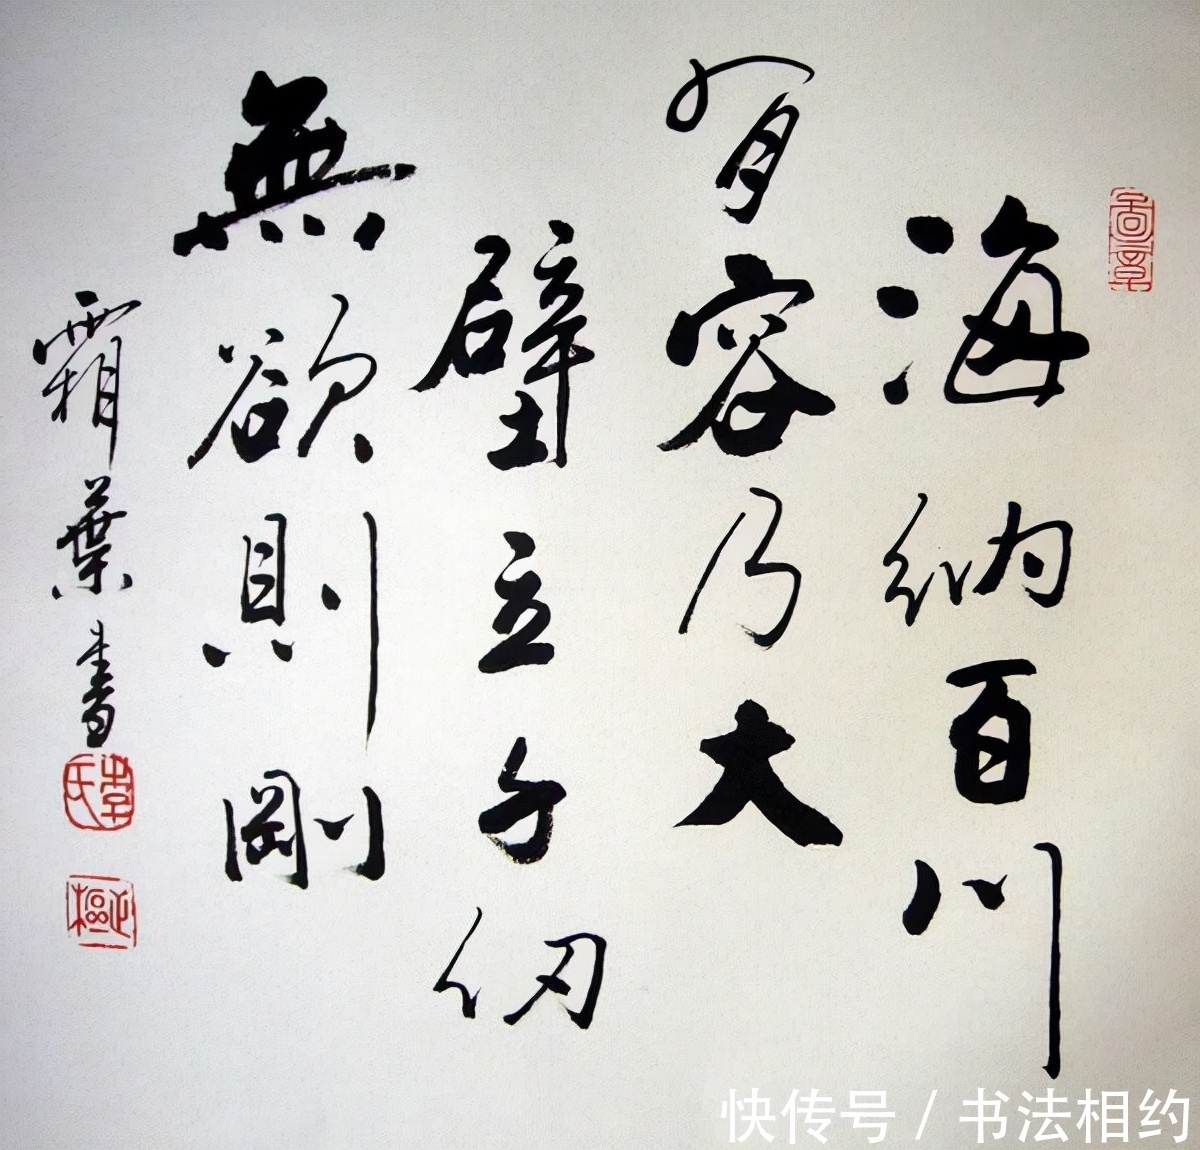 海納百川
有容乃大
壁立千仞
無欲則剛
霜葉書
快传号 / 书法相约